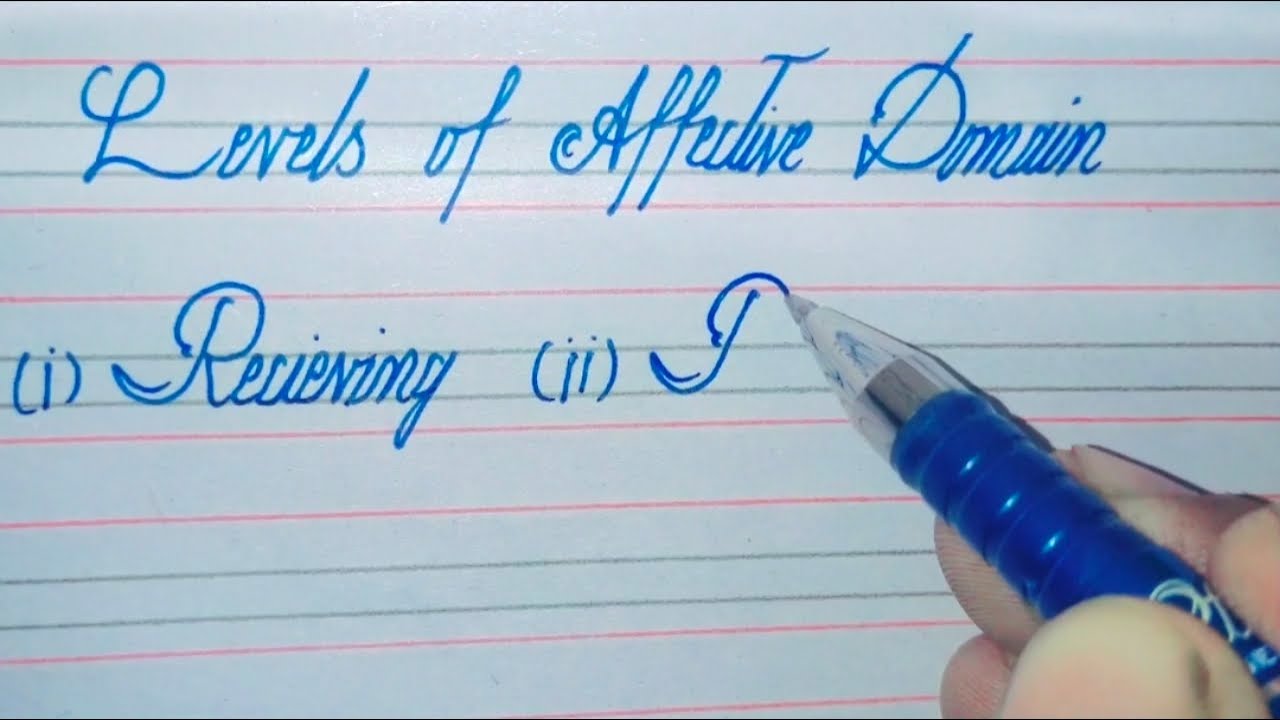 Levels of Affective Domain
(i) Recieving (ii)